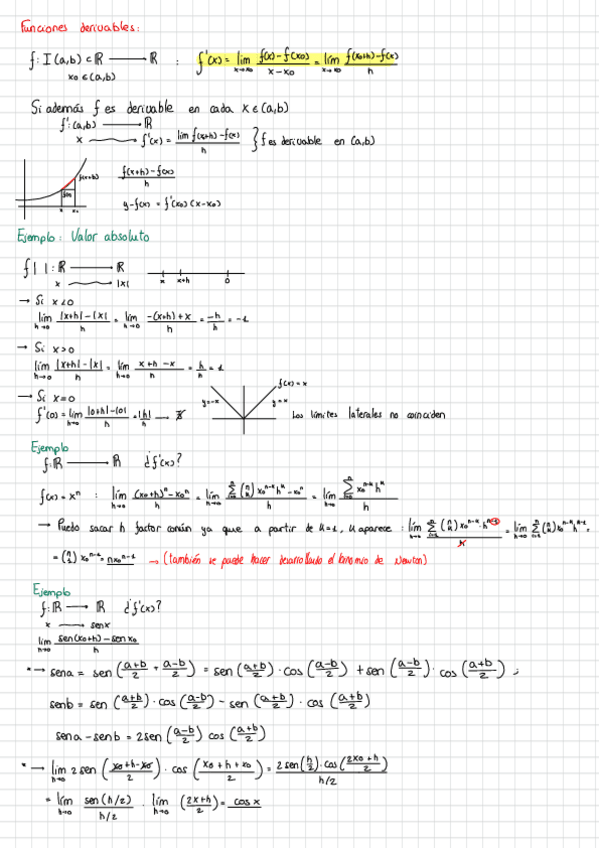 Funciones derivables:
f: I(a,b) ⊂ ℝ ⟶ ℝ : f'(x) = lím x→x₀ (f(x)-f(x₀))/(x-x₀) = lím x→x₀ (f(x₀+h)-f(x))/h
x₀ ∈ (a,b)
Si además f es derivable en cada x ∈ (a,b)
f': (a,b) ⟶ ℝ
x ⟿ f'(x) = lím f(x+h)-f(x) / h } f es derivable en (a,b)
f(x+h)
(f(x+h)-f(x))/h
y-f(x) = f'(x₀)(x-x₀)
x x₀
Ejemplo: Valor absoluto
f | |: ℝ ⟶ ℝ
x ⟿ |x|
x x+h 0
→ Si x<0
lím h→0 (|x+h|-|x|)/h = lím h→0 (-(x+h)+x)/h = -h/h = -1
→ Si x>0
lím h→0 (|x+h|-|x|)/h = lím h→0 (x+h-x)/h = h/h = 1
→ Si x=0
f'(0) = lím h→0 (|0+h|-|0|)/h = |h|/h → ∄
f(x)=x
y=-x y=x
Los límites laterales no coinciden
Ejemplo
f: ℝ ⟶ ℝ ¿f'(x)?
f(x) = xⁿ : lím h→0 ((x₀+h)ⁿ-x₀ⁿ)/h
→ Puedo sacar h factor común ya que a partir de k=1, k aparece:
= (n 1) x₀ⁿ⁻¹ = nx₀ⁿ⁻¹ → (también se puede hacer desarrollado el binomio de Newton)
Ejemplo
f: ℝ ⟶ ℝ ¿f'(x)?
x ⟶ senx
lím h→0 (sen(x₀+h)-senx₀)/h
*→ sena = sen((a+b)/2 + (a-b)/2) = sen((a+b)/2)·cos((a-b)/2) + sen((a-b)/2)·cos((a+b)/2) ;
senb = sen((a+b)/2)·cos((a-b)/2) - sen((a+b)/2)·cos((a+b)/2)
sena-senb = 2sen((a-b)/2) cos((a+b)/2)
*→ lím h→0 2sen((x₀+h-x₀)/2)·cos((x₀+h+x₀)/2) = 2sen(h/2)·cos((2x₀+h)/2) / h/2
= lím h→0 sen(h/2)/(h/2) · lím h→0 ((2x+h)/2) = cosx